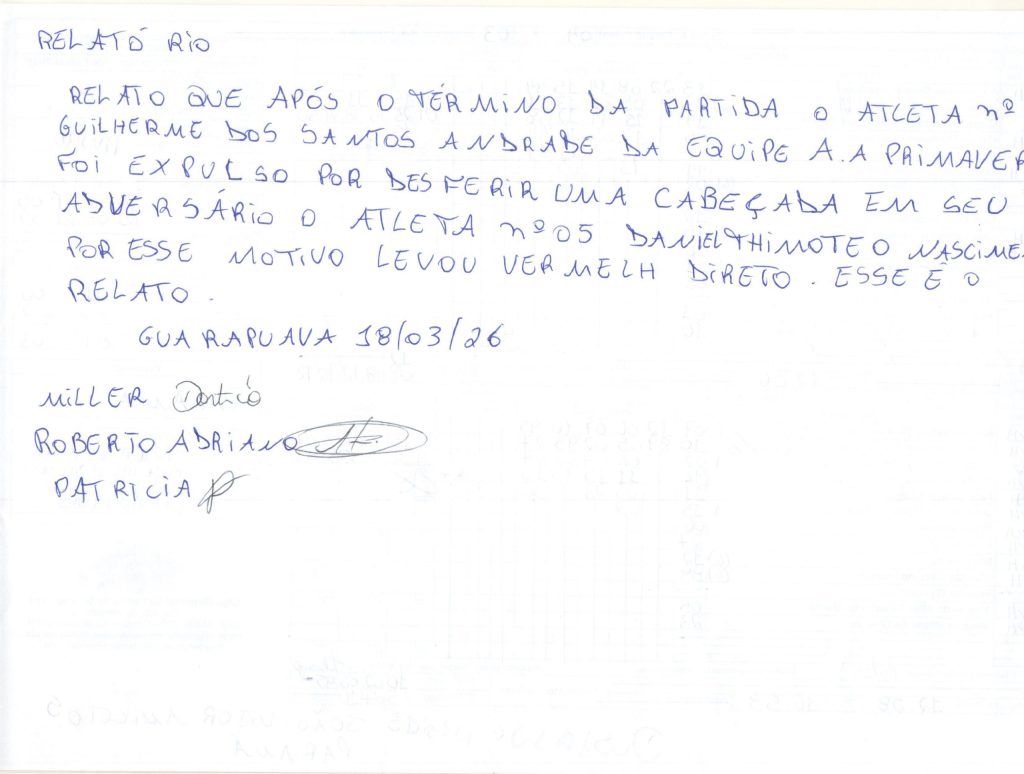 RELATÓRIO
RELATO QUE APÓS O TÉRMINO DA PARTIDA O ATLETA nº
GUILHERME DOS SANTOS ANDRADE DA EQUIPE A.A PRIMAVER
FOI EXPULSO POR DESFERIR UMA CABEÇADA EM SEU
ADVERSÁRIO O ATLETA nº 05 DANIEL THIMOTEO NASCIME
POR ESSE MOTIVO LEVOU VERMELH DIRETO. ESSE É O
RELATO.
GUARAPUAVA 18/03/26
MILLER
ROBERTO ADRIANO
PATRICIA